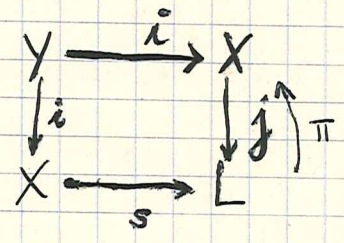 Y i X
i j π
X s L